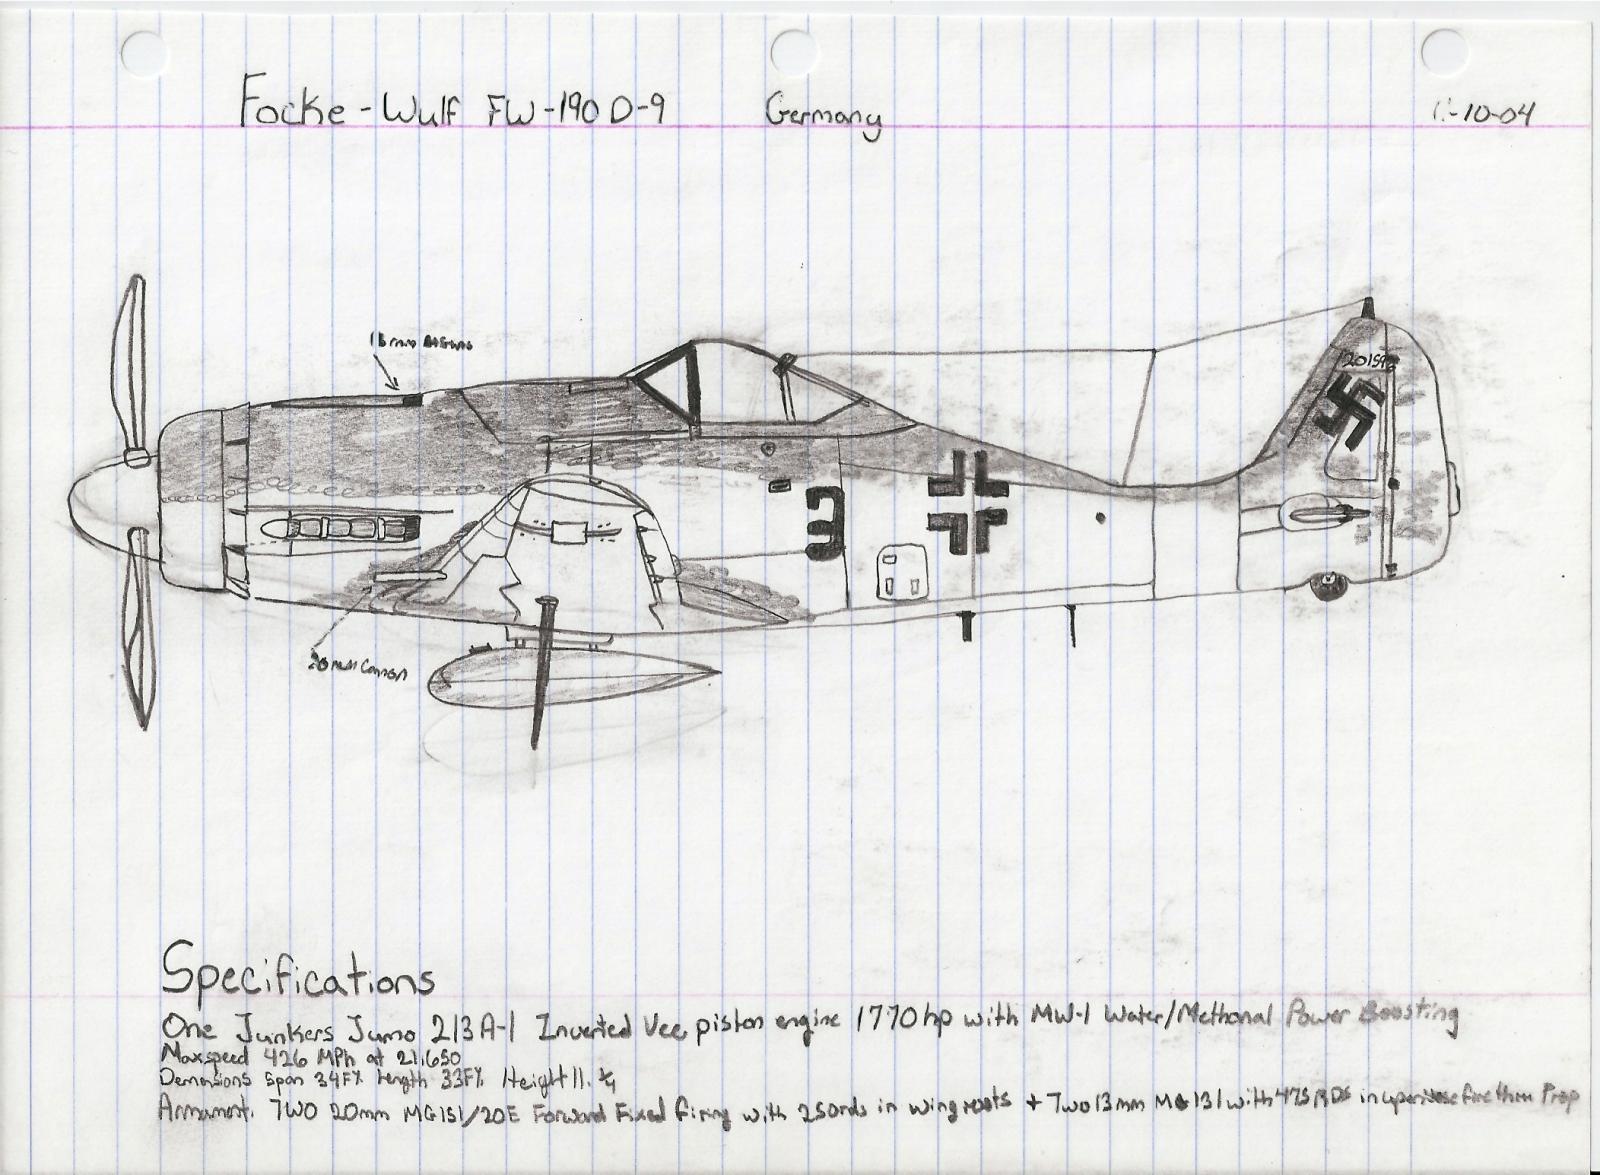 Focke-Wulf FW-190 D-9 Germany -10-04
13mm
20mm Cannon
3
Specifications
One Junkers Jumo 213A-1 Inverted Vee piston engine 1770hp with MW-1 Water/Methonal Power Boosting
Maxspeed 426 MPh at 21,650
Span 34F% Length 33F% Height 11.
Two 20mm MG151/20E Forward Fixed firing with 250rds in wing roots + Two 13mm MG131 with 475 RDS in Prop